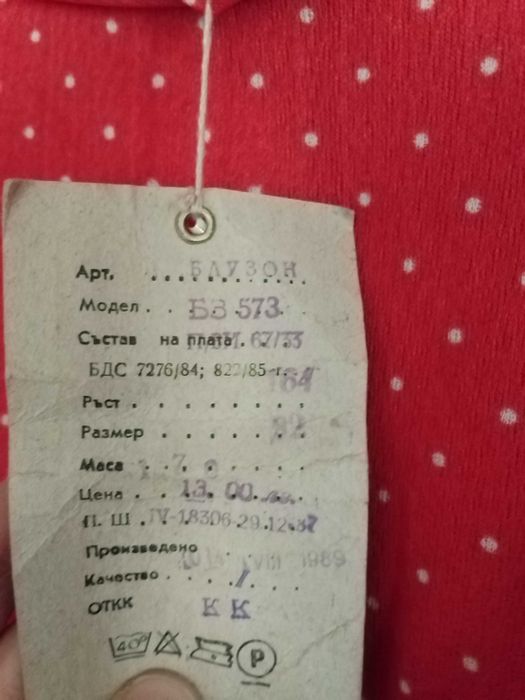 Арт. . . . БЛУЗОН
Модел . . БВ 573
Състав на плата . 67/33
БДС 7276/84; 822/85 г.
164
Ръст . . . . . . . .
Размер . . . . . . .
Маса . . . . . . .
Цена . . 13.00 лв.
П. Ш IV-18306-29.12.87
Произведено
VIII 1989
Качество . . . . I
ОТКК К К
40° P